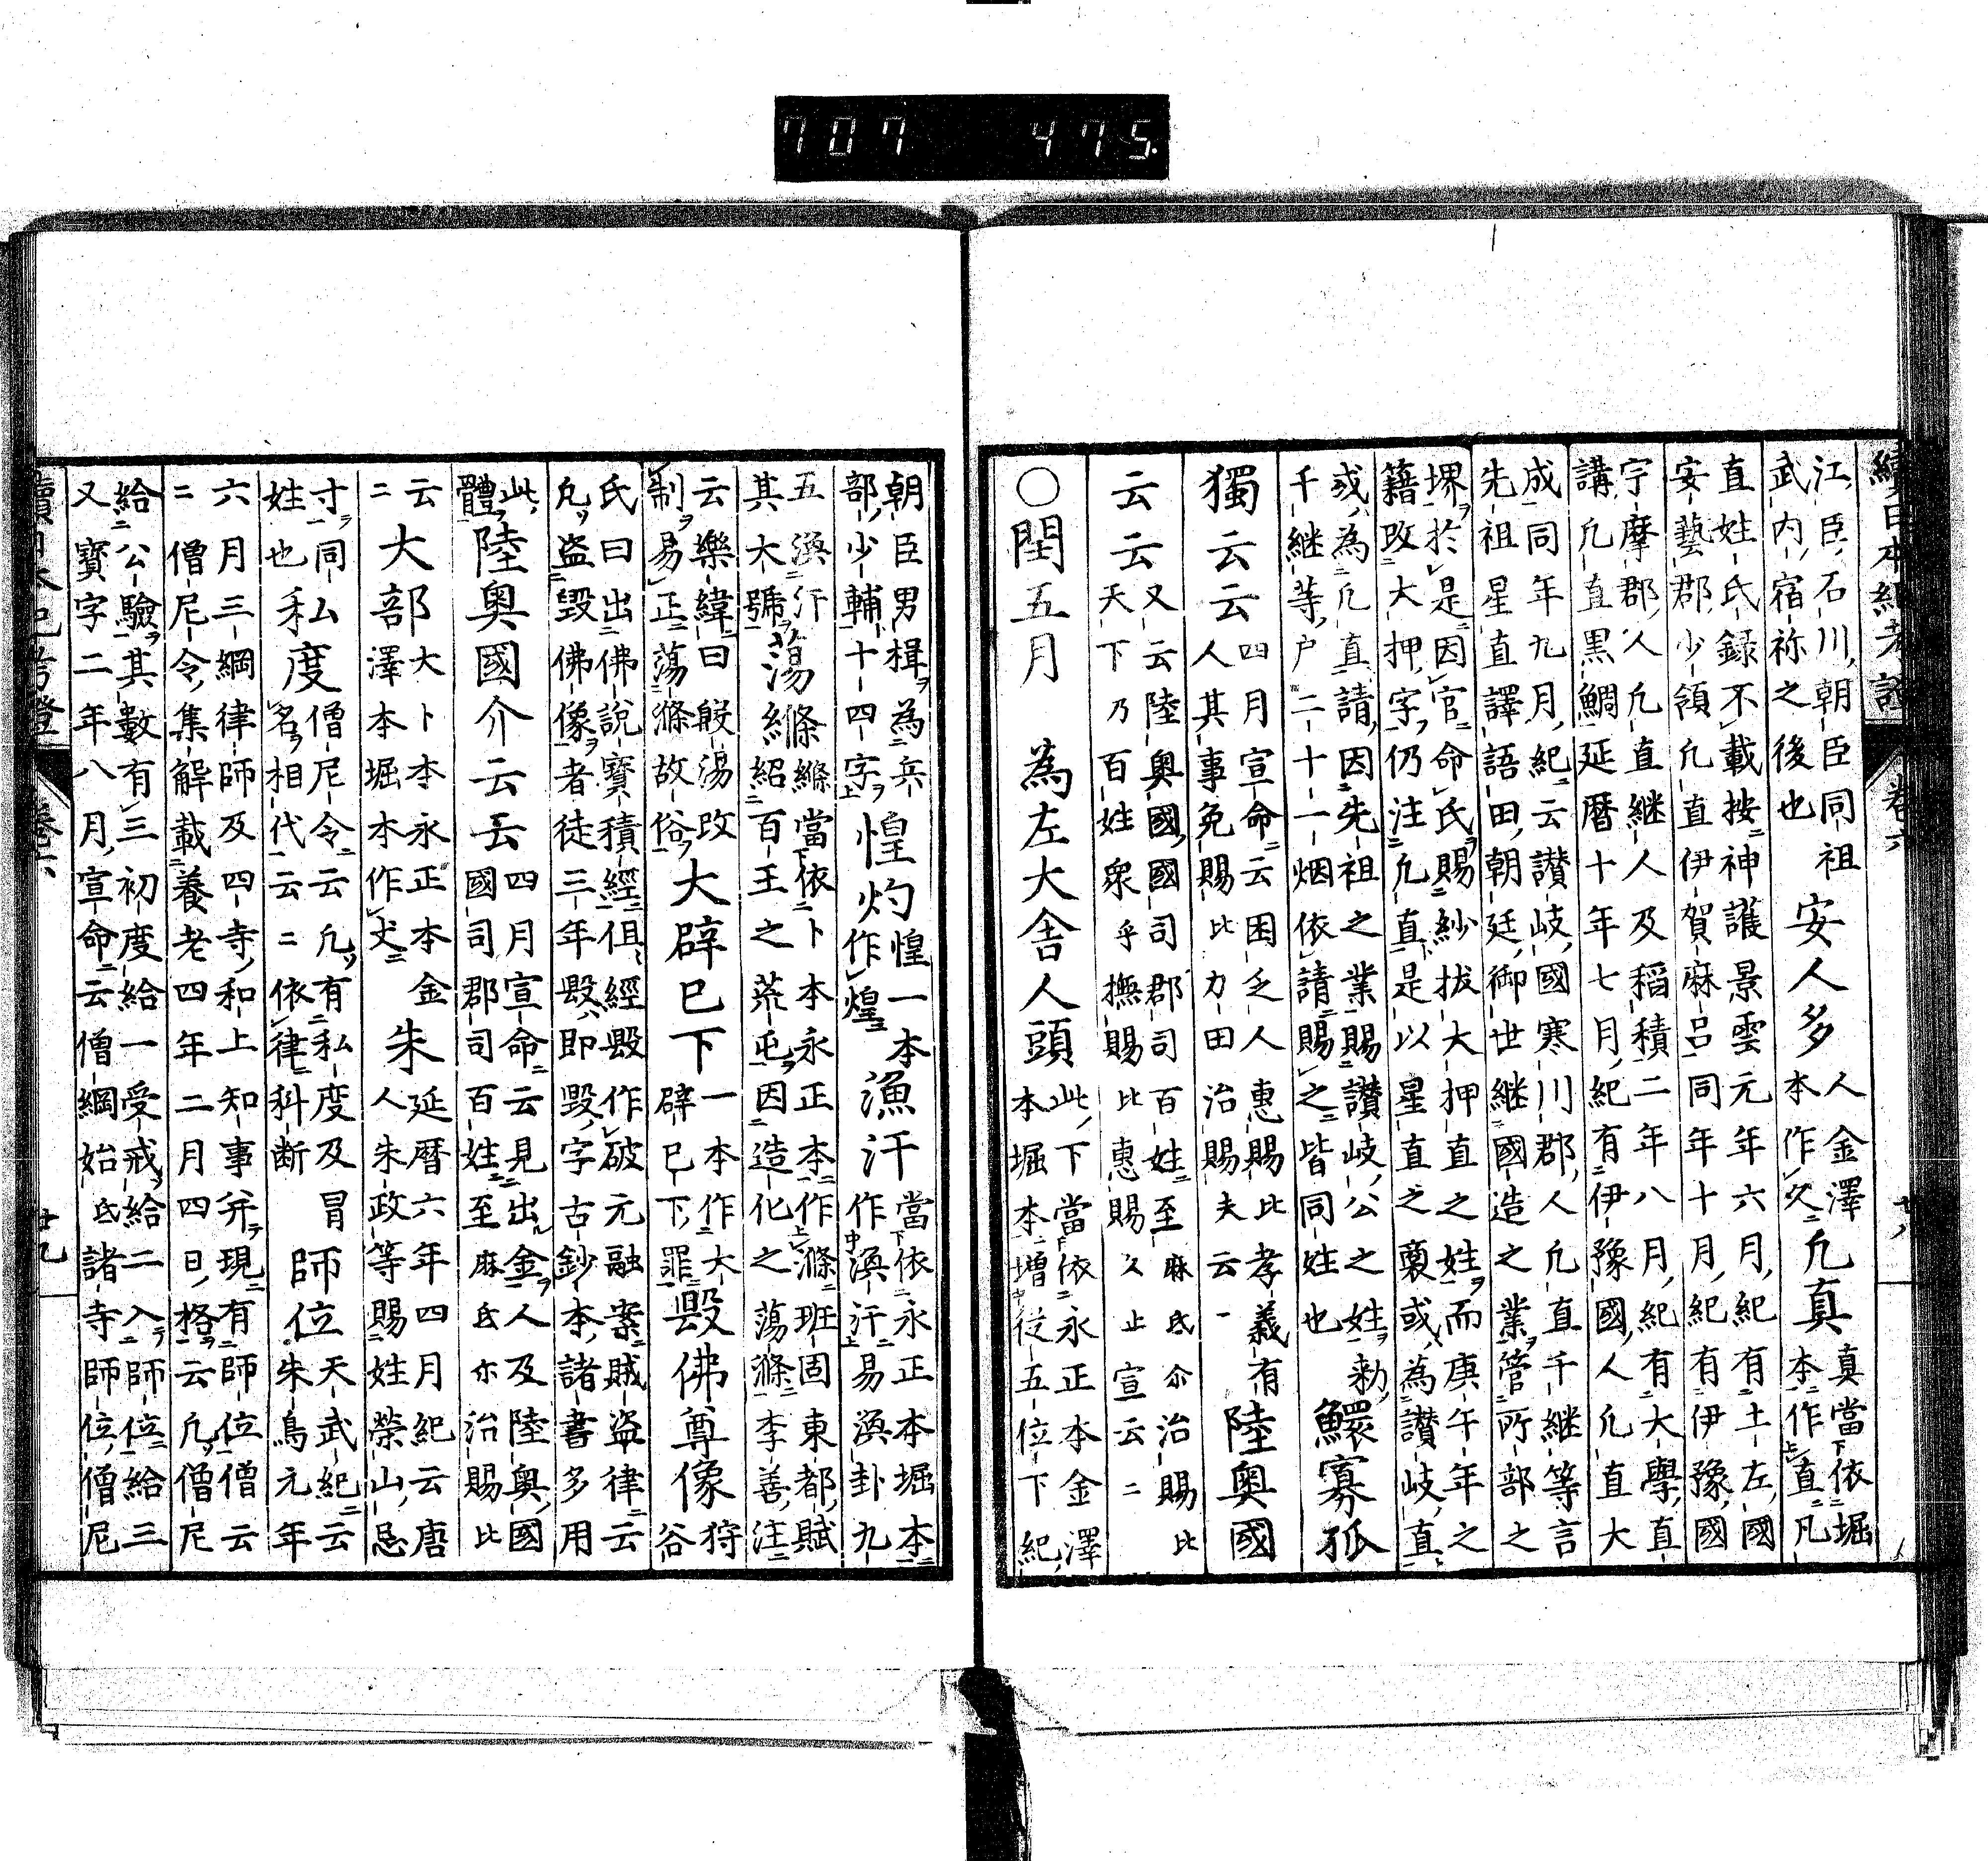 707 475
續日本紀考證 卷六 廿八
江臣石川朝臣同祖
武内宿祢之後也
安人多
人金澤
本作久
凢真
真當依堀
本作直凡
直姓氏録不載按神護景雲元年六月紀有土左國
安藝郡少領凢直伊賀麻呂同年十月紀有伊豫國
宇摩郡人凢直継人及稻積二年八月紀有大學直
講凢直黒鯛延暦十年七月紀有伊豫國人凢直大
成同年九月紀云讃岐國寒川郡人凢直千継等言
先祖星直譯語田朝廷御世継國造之業管所部之
堺於是因官命氏賜紗抜大押直之姓而庚午年之
籍改大押字仍注凢直是以星直之裔或為讃岐直
或為凢直請因先祖之業賜讃岐公之姓勅
千継等户二十一烟依請賜之皆同姓也
鰥寡孤
獨云云
四月宣命云困乏人惠賜比孝義有
人其事免賜比力田治賜夫云一
陸奥國
云云
又云陸奥國國司郡司百姓至麻氐尒治賜比
天下乃百姓衆乎撫賜比惠賜久止宣云二
○閏五月 為左大舎人頭
此下當依永正本金澤
本堀本増從五位下紀
朝臣男楫為兵
部少輔十四字
惶灼
惶一本
作煌
漁汗
當依永正本堀本
作渙汗易渙卦九
五渙汗
其大號
蕩絛
絛當依卜本永正本作滌班固東都賦
紹百王之荒屯因造化之蕩滌李善注
云樂緯曰殷湯改
制易正蕩滌故俗
大辟已下
一本作大
辟已下罪
毀佛尊像
狩谷
氏曰出佛説寶積經但經毀作破元融案賊盗律云
凢盗毀佛像者徒三年毀即毀字古鈔本諸書多用
此體
陸奥國介云云
四月宣命云見出金人及陸奥國
國司郡司百姓至麻氐尒治賜比
云二
大部
大卜本永正本金
澤本堀本作犬
朱
延暦六年四月紀云唐
人朱政等賜姓榮山忌
寸同
姓也
私度
僧尼令云凢有私度及冒
名相代云二依律科断
師位
天武紀云
朱鳥元年
六月三綱律師及四寺和上知事并現有師位僧云
二僧尼令集解載養老四年二月四日格云凢僧尼
給公驗其數有三初度給一受戒給二入師位給三
又寳字二年八月宣命云僧綱始氐諸寺師位僧尼
續日本紀考證 卷六 廿九